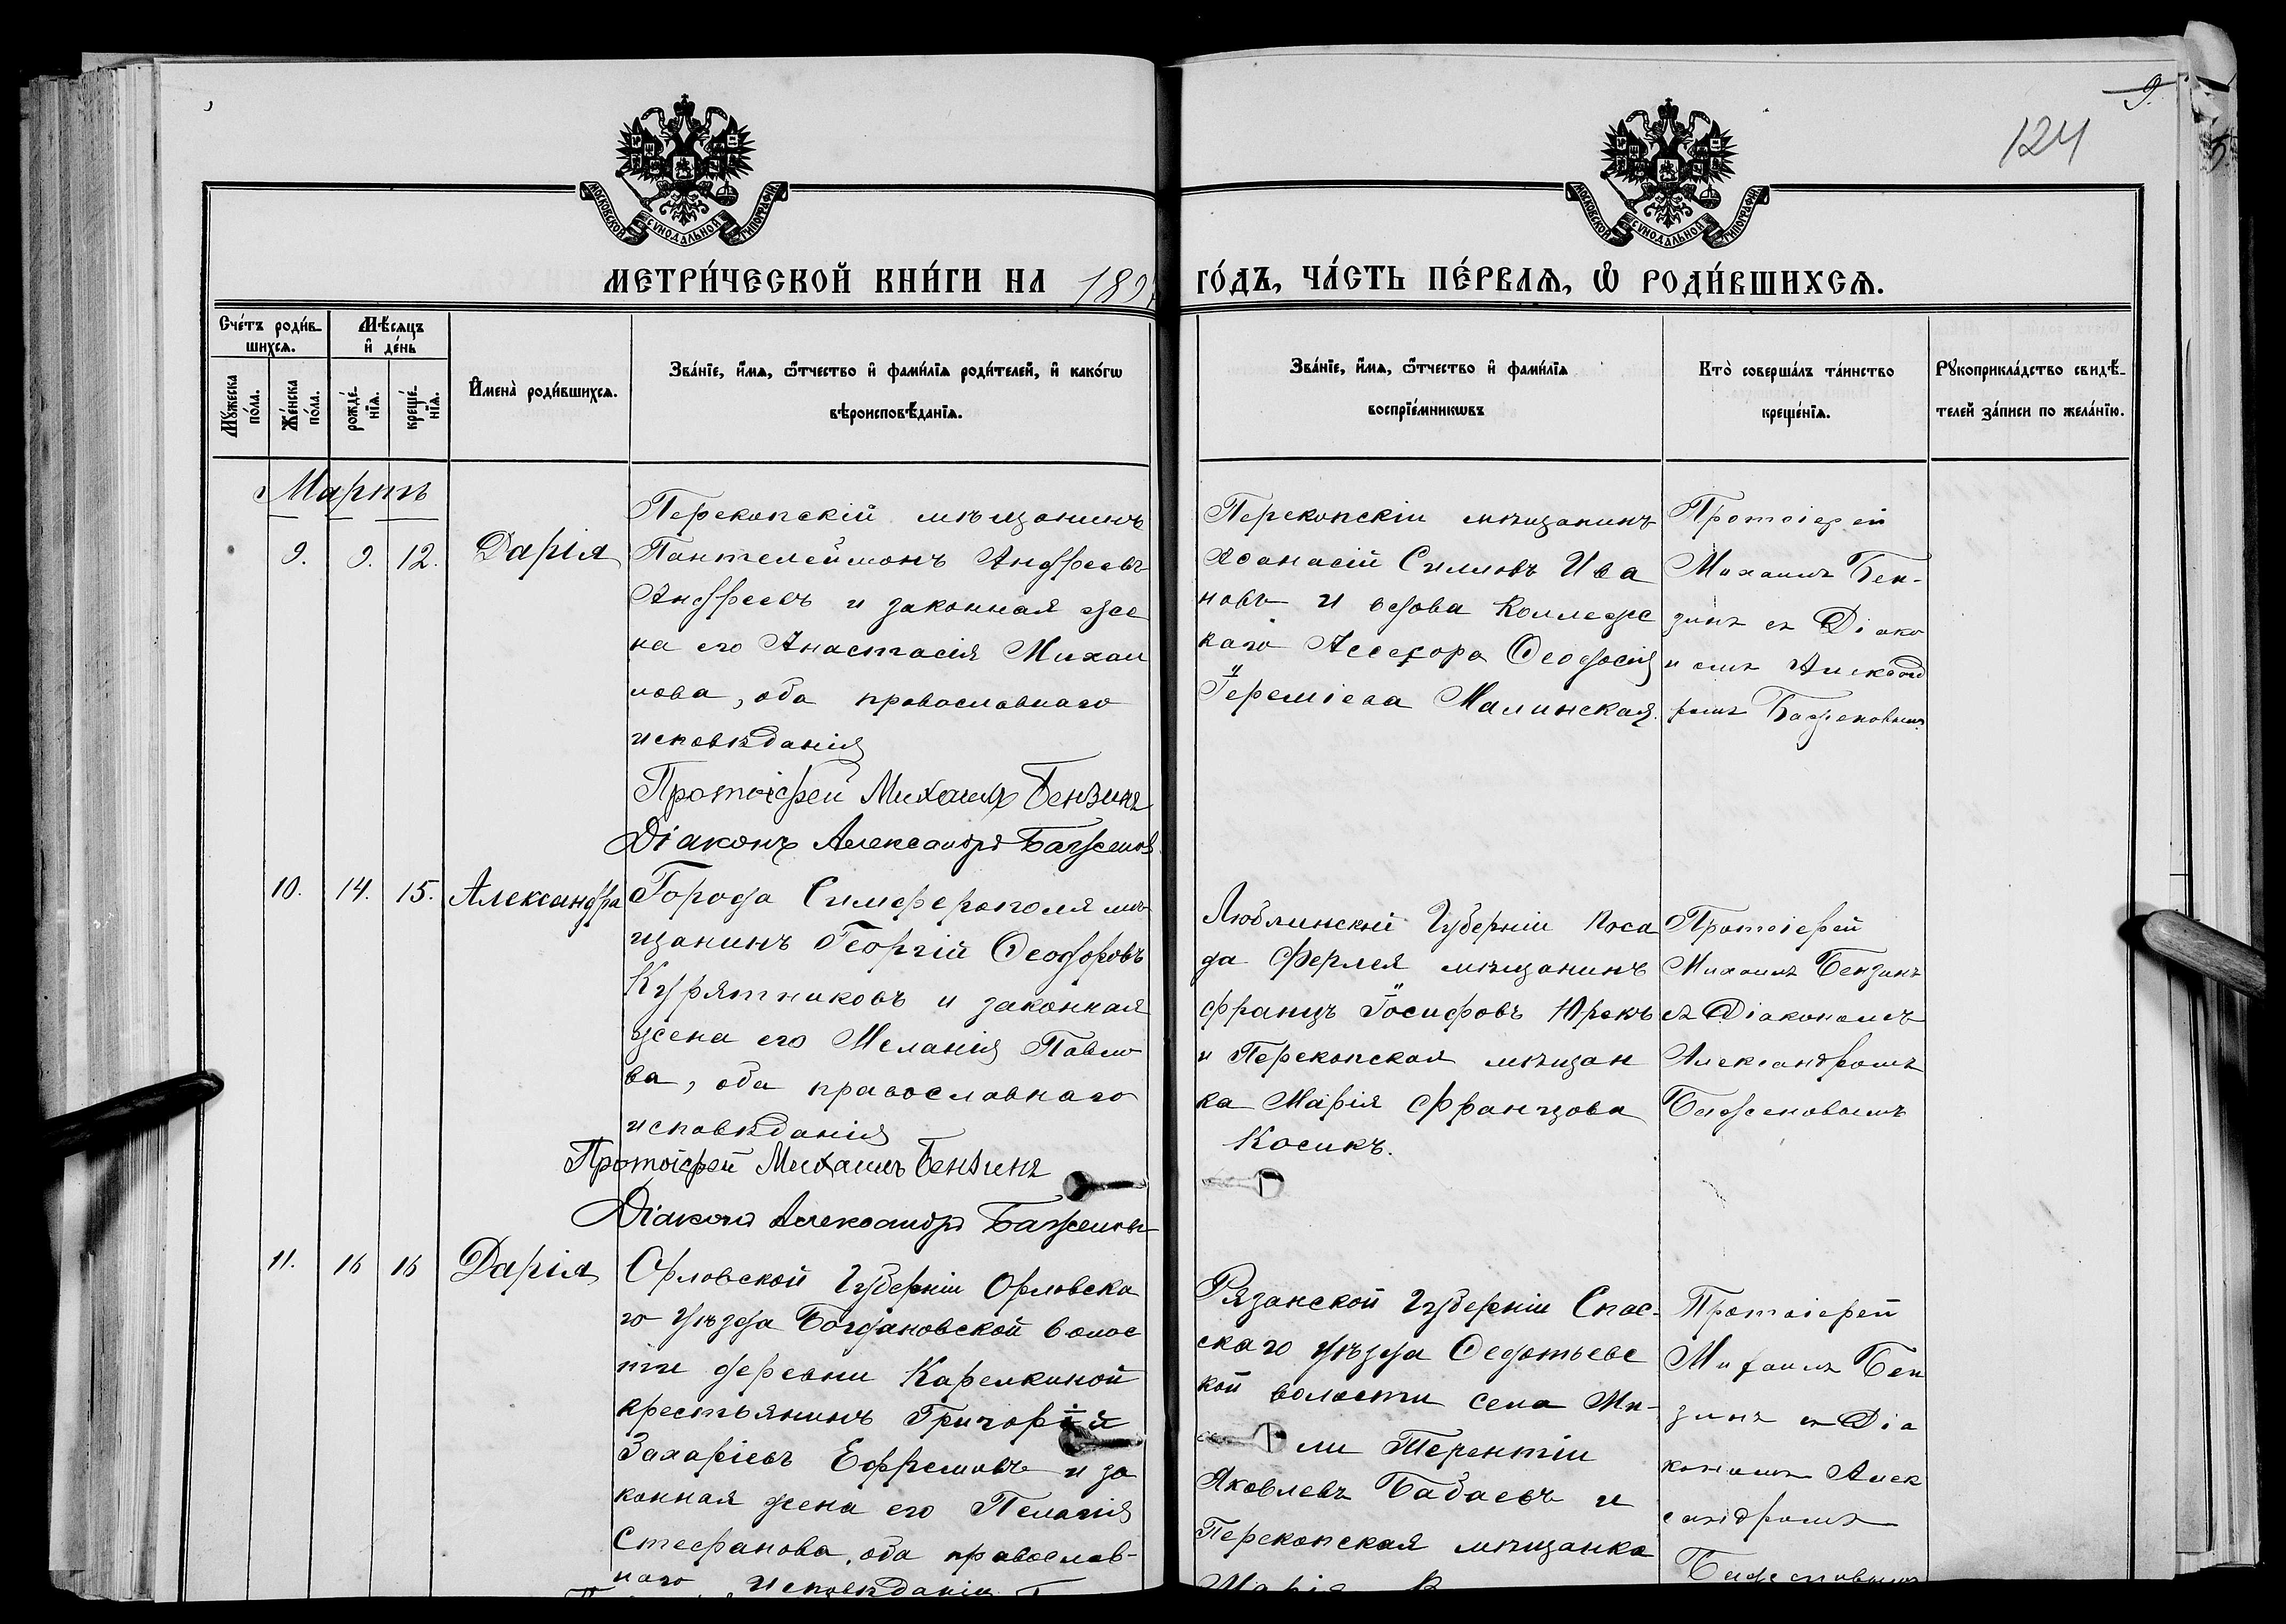 9.
124
МОСКОВСКОЙ СУНОДАЛЬНОЙ ТИПОГРАФІИ
МОСКОВСКОЙ СУНОДАЛЬНОЙ ТИПОГРАФІИ
МЕТРИ́ЧЕСКОЙ КНИ́ГИ НА 189
ГО́ДЪ, ЧА́СТЬ ПЕ́РВАѦ, Ѡ҆ РОДИ́ВШИХСѦ.
Сче́тъ роди́в-
шихсѧ.
Мѣ́сѧцъ
и҆ де́нь
Мꙋ́жеска
по́ла.
Же́нска
по́ла.
рожде́-
нїѧ.
креще́-
нїѧ.
И҆мена̀ роди́вшихсѧ.
Зва́нїе, и҆́мѧ, ѻ҆́тчество и҆ фами́лїѧ роди́телей, и҆ како́гѡ
вѣроисповѣ́данїѧ.
Зва́нїе, и҆́мѧ, ѻ҆́тчество и҆ фами́лїѧ
воспрїе́мникѡвъ
Кто̀ соверша́лъ та́инство
креще́нїѧ.
Рꙋкоприкла́дство свидѣ́-
телей за́писи по жела́нїю.
Мартъ
9. 9. 12. Дарія
Перекопскій мѣщанинъ
Пантелеймонъ Андреевъ
Андреевъ и законная же
на его Анастасія Михаи
лова, оба православнаго
исповѣданія
Протоіерей Михаилъ Бензинъ
Діаконъ Александръ Баженовъ
Перекопскій мѣщанинъ
Аѳанасій Силинъ Ива
новъ и вдова Коллежс
каго Ассесора Ѳеодосія
Іереміева Малинская.
Протоіерей
Михаилъ Бен-
зинъ съ Діако
номъ Александ
ромъ Баженовымъ
10. 14. 15. Александра
Города Симферополя мѣ
щанинъ Георгій Ѳеодоровъ
Курятниковъ и законная
жена его Меланія Павло
ва, оба православнаго
исповѣданія
Протоіерей Михаилъ Бензинъ
Діаконъ Александръ Баженовъ
Люблинской Губерніи Поса
да Ферлея мѣщанинъ
Францъ Іосифовъ Юрекъ
и Перекопская мѣщан
ка Марія Францова
Косикъ.
Протоіерей
Михаилъ Бензинъ
съ Діакономъ
Александромъ
Баженовымъ
11. 16 16 Дарія
Орловской Губерніи Орловска
го уѣзда Богдановской волос
ти деревни Карелкиной
крестьянинъ Григорій
Захаріевъ Ефремовъ и за
конная жена его Пелагія
Стефанова, оба православ-
наго исповѣданія
Рязанской Губерніи Спас-
скаго уѣзда Ѳедотьевс
кой волости села Ми-
ли Терентій
Яковлевъ Бабаевъ и
Перекопская мѣщанка
Марія
Протоіерей
Михаилъ Бен
зинъ съ Діа
кономъ Алек
сандромъ
Баженовымъ